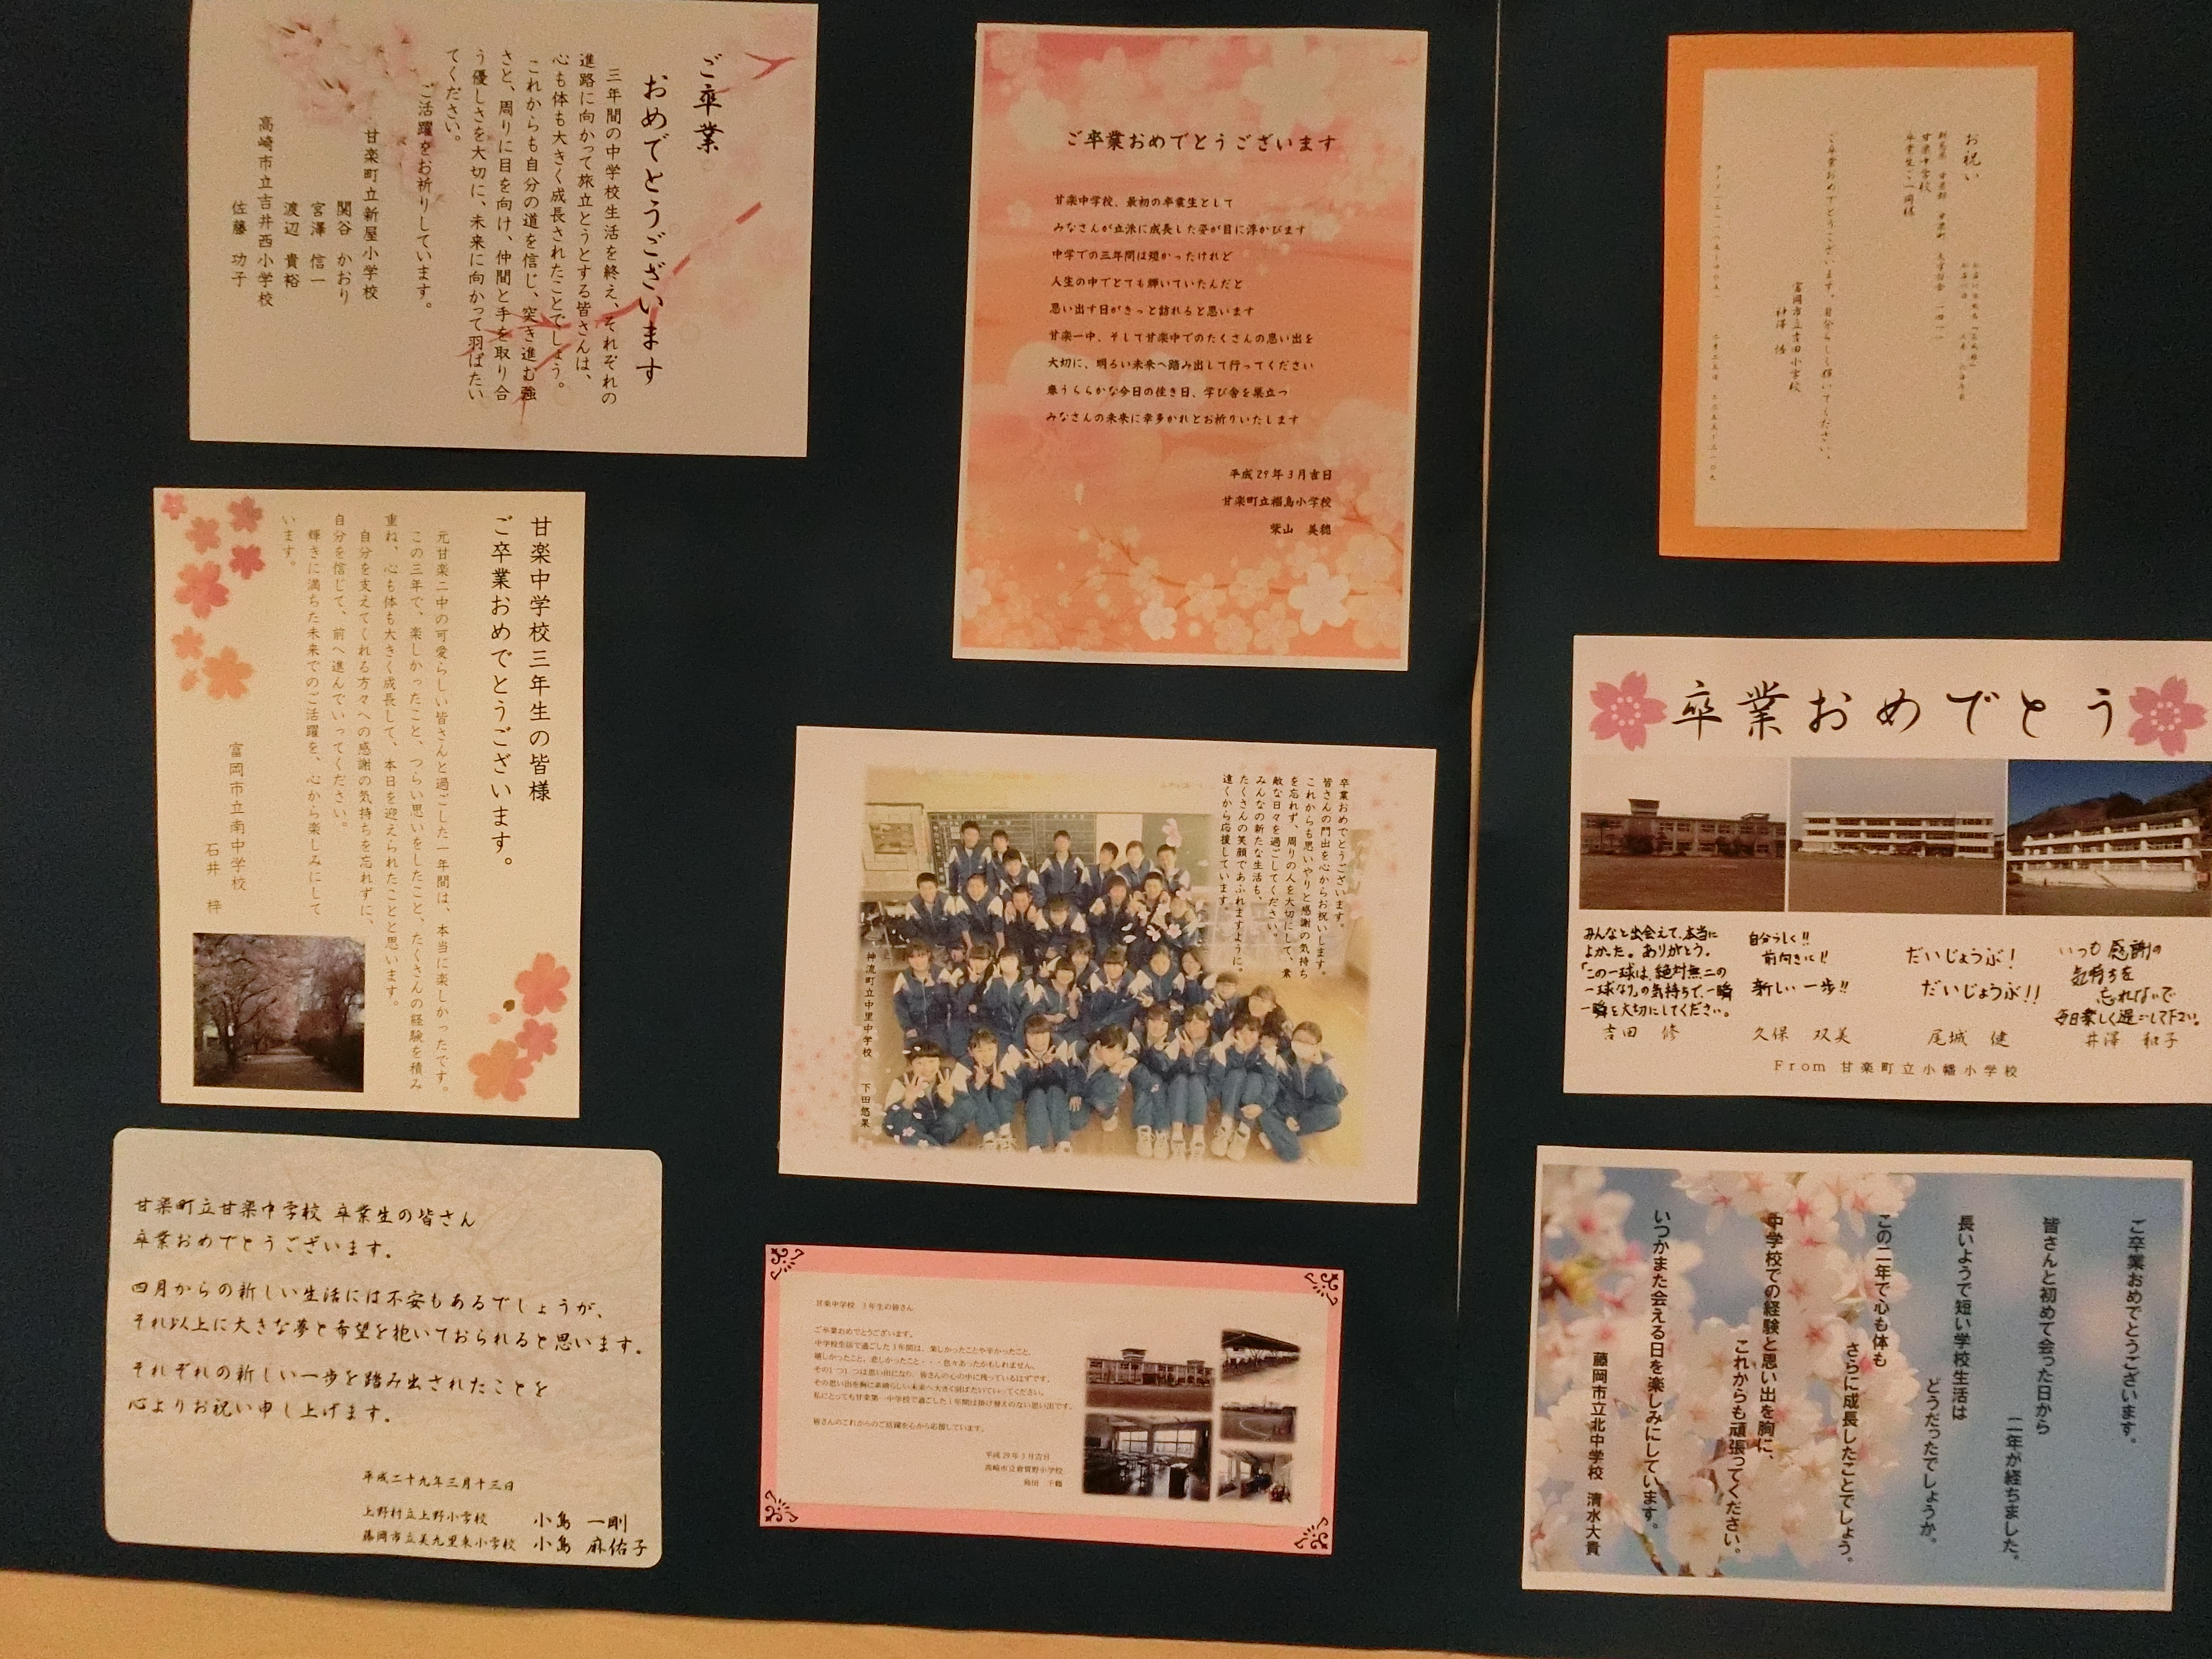 ご卒業
おめでとうございます
三年間の中学校生活を終え、それぞれの
進路に向かって旅立とうとする皆さんは、
心も体も大きく成長されたことでしょう。
これからも自分の道を信じ、突き進む強
さと、周りに目を向け、仲間と手を取り合
う優しさを大切に、未来に向かって羽ばたい
てください。
ご活躍をお祈りしています。
甘楽町立新屋小学校
関谷 かおり
宮澤 信一
渡辺 貴裕
高崎市立吉井西小学校
佐藤 功子
ご卒業おめでとうございます
甘楽中学校、最初の卒業生として
みなさんが立派に成長した姿が目に浮かびます
中学での三年間は短かったけれど
人生の中でとても輝いていたんだと
思い出す日がきっと訪れると思います
甘楽一中、そして甘楽中でのたくさんの思い出を
大切に、明るい未来へ踏み出して行ってください
春うららかな今日の佳き日、学び舎を巣立つ
みなさんの未来に幸多かれとお祈りいたします
平成29年3月吉日
甘楽町立福島小学校
柴山 美穂
お祝い
甘楽中学校
卒業生ご一同様
ご卒業おめでとうございます。自分らしく輝いてください。
富岡市立吉田小学校
甘楽中学校三年生の皆様
ご卒業おめでとうございます。
元甘楽二中の可愛らしい皆さんと過ごした一年間は、本当に楽しかったです。
この三年で、楽しかったこと、つらい思いをしたこと、たくさんの経験を積み
重ね、心も体も大きく成長して、本日を迎えられたことと思います。
自分を支えてくれる方々への感謝の気持ちを忘れずに、
自分を信じて、前へ進んでいってください。
輝きに満ちた未来でのご活躍を、心から楽しみにして
います。
富岡市立南中学校
石井 梓
卒業おめでとうございます。
皆さんの門出を心からお祝いします。
これからも思いやりと感謝の気持ち
を忘れず、周りの人を大切にして、素
敵な日々を過ごしてください。
みんなの新たな生活も、
たくさんの笑顔であふれますように。
遠くから応援しています。
神流町立中里中学校 下田悠果
卒業おめでとう
みんなと出会えて、本当に
よかった。ありがとう。
「この一球は、絶対無二の
一球なり」の気持ちで、一瞬
一瞬を大切にしてください。
吉田 修
自分らしく!!
前向きに!!
新しい一歩!!
久保 双美
だいじょうぶ!
だいじょうぶ!!
尾城 健
いつも感謝の
気持ちを
忘れないで
毎日楽しく過ごして下さい。
井澤 和子
From 甘楽町立小幡小学校
甘楽町立甘楽中学校 卒業生の皆さん
卒業おめでとうございます。
四月からの新しい生活には不安もあるでしょうが、
それ以上に大きな夢と希望を抱いておられると思います。
それぞれの新しい一歩を踏み出されたことを
心よりお祝い申し上げます。
平成二十九年三月十三日
上野村立上野小学校 小島 一剛
藤岡市立美九里東小学校 小島 麻佑子
甘楽中学校 3年生の皆さん
ご卒業おめでとうございます。
中学校生活で過ごした3年間は、楽しかったことや辛かったこと、
嬉しかったこと、悲しかったこと・・・色々あったかもしれません。
その1つ1つは思い出になり、皆さんの心の中に残っているはずです。
その思い出を胸に素晴らしい未来へ大きく羽ばたいていってください。
私にとっても甘楽第一中学校で過ごした1年間は掛け替えのない思い出です。
皆さんのこれからのご活躍を心から応援しています。
平成29年3月吉日
高崎市立倉賀野小学校
ご卒業おめでとうございます。
皆さんと初めて会った日から
二年が経ちました。
長いようで短い学校生活は
どうだったでしょうか。
この二年で心も体も
さらに成長したことでしょう。
中学校での経験と思い出を胸に、
これからも頑張ってください。
いつかまた会える日を楽しみにしています。
藤岡市立北中学校 清水大貴